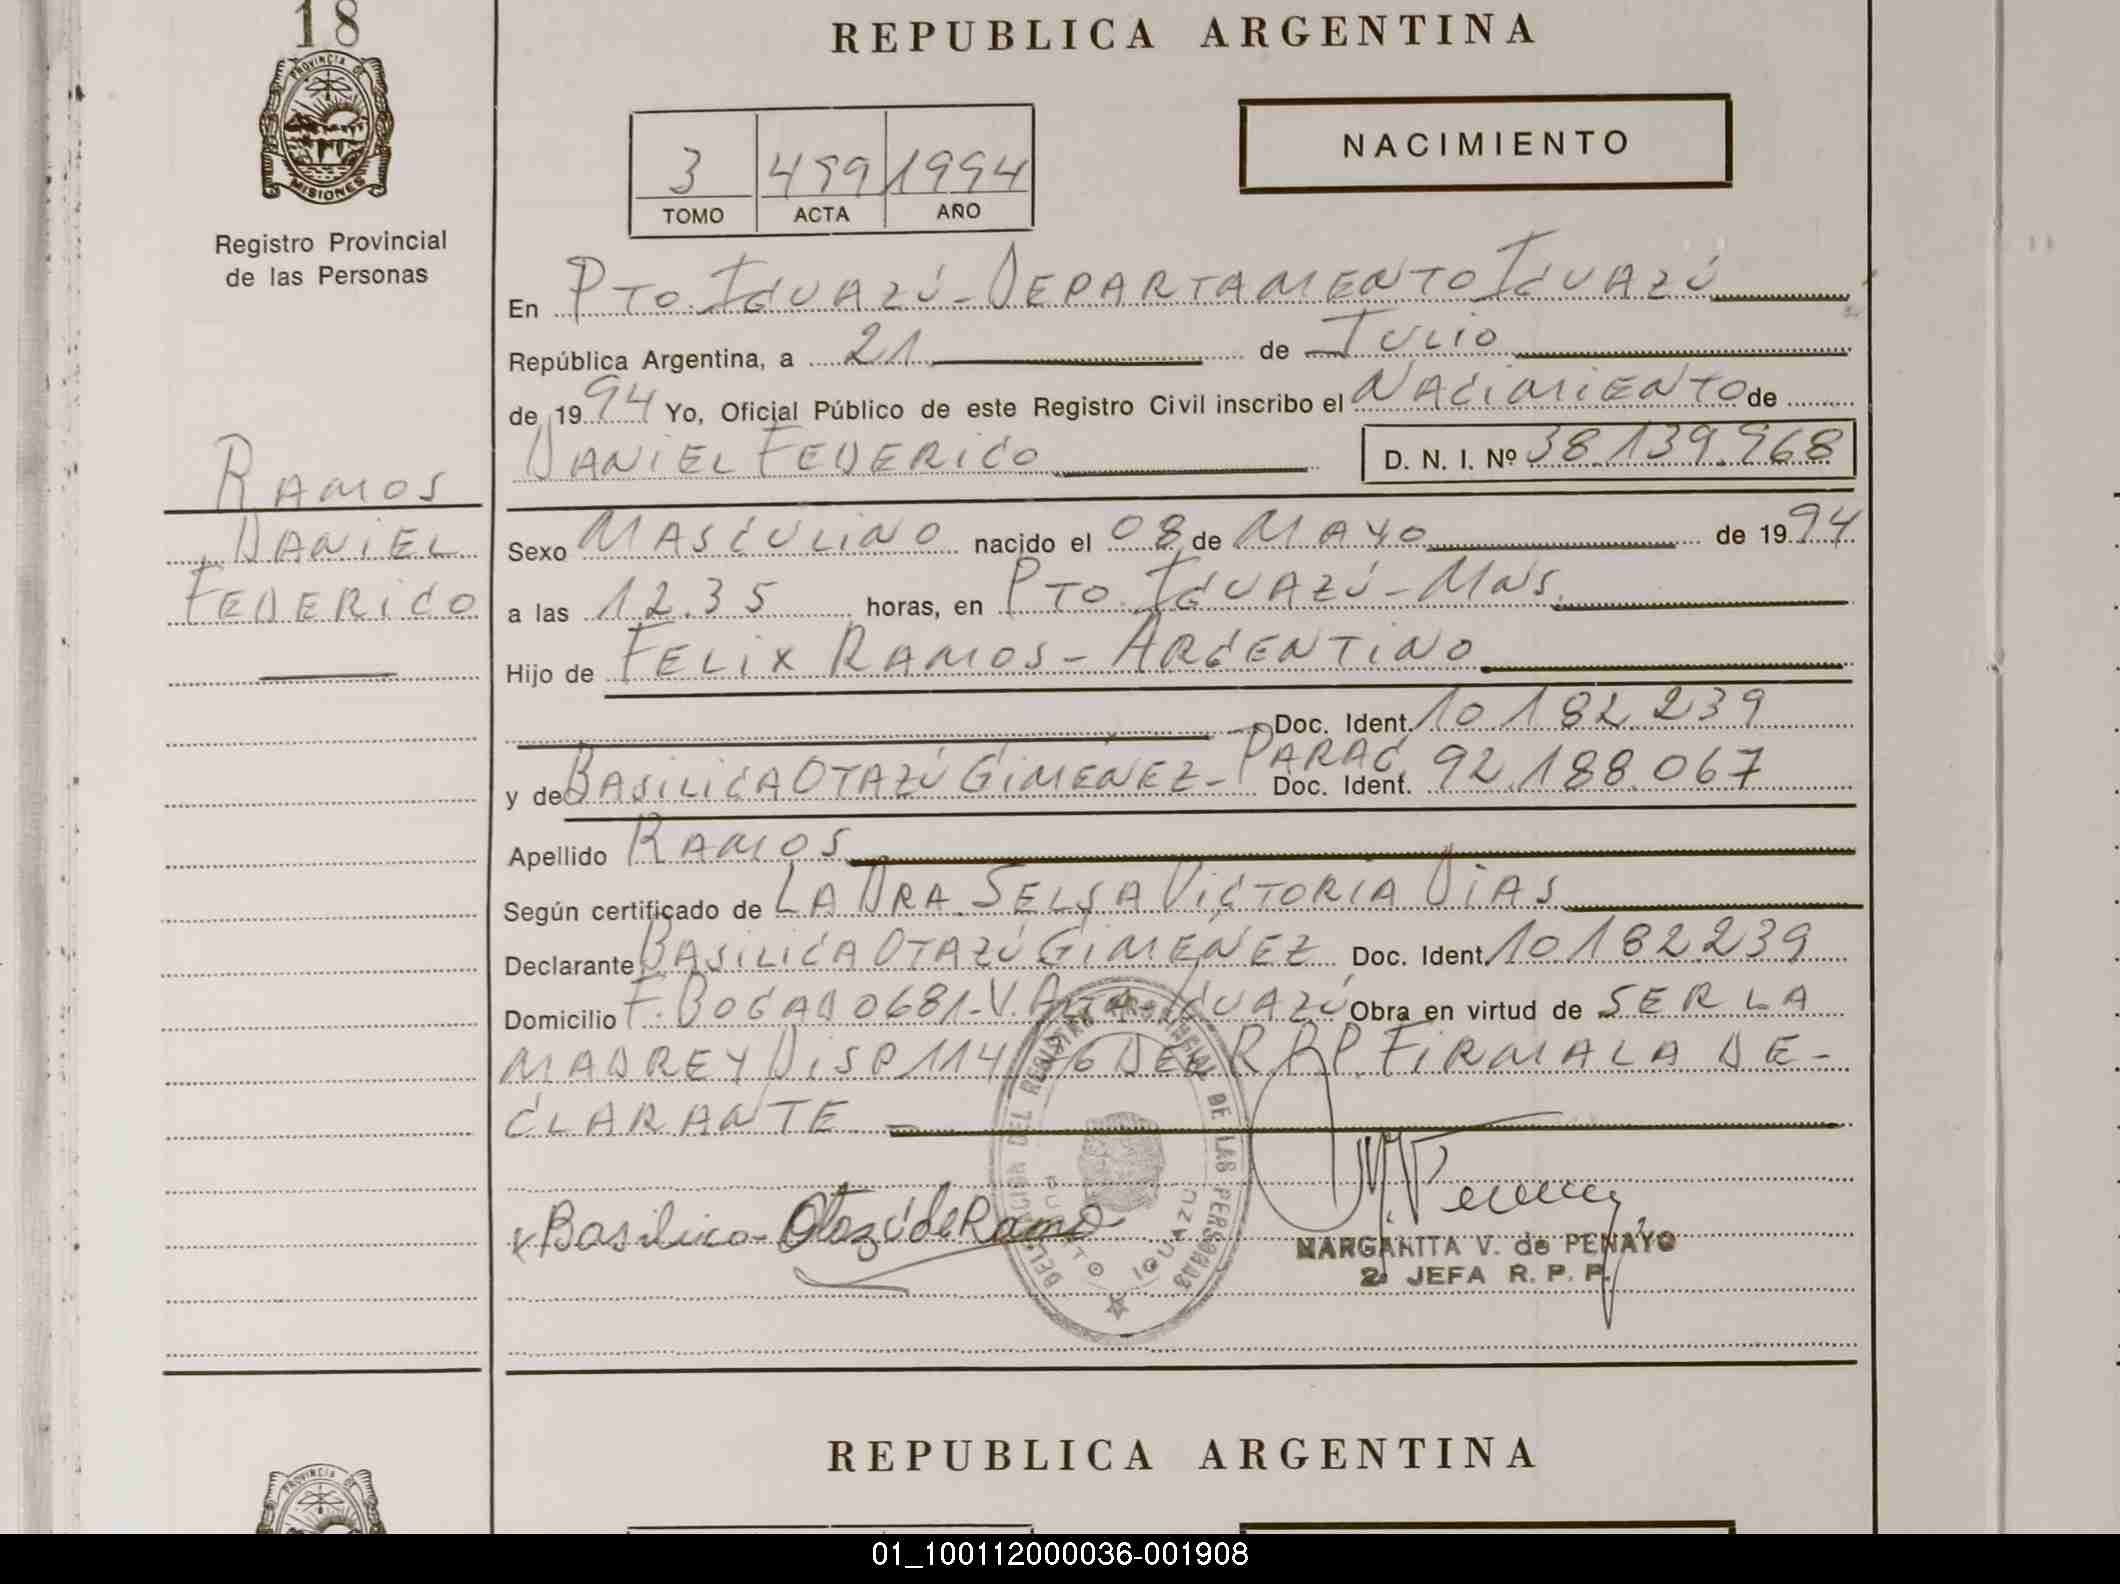 18
REPUBLICA ARGENTINA
PROVINCIA DE
MISIONES
Registro Provincial
de las Personas
3 499 1994
TOMO ACTA AÑO
NACIMIENTO
En PTO. IGUAZÚ - DEPARTAMENTO IGUAZÚ
República Argentina, a 21 de JULIO
de 1994 Yo, Oficial Público de este Registro Civil inscribo el NACIMIENTO de
DANIEL FEDERICO D. N. I. Nº 38.139.968
RAMOS
DANIEL
FEDERICO
Sexo MASCULINO nacido el 08 de MAYO de 1994
a las 12.35 horas, en PTO. IGUAZÚ - MNS.
Hijo de FELIX RAMOS - ARGENTINO
Doc. Ident. 10.182.239
y de BASILICA OTAZÚ GIMENEZ - PARAG. Doc. Ident. 92.188.067
Apellido RAMOS
Según certificado de LA DRA. SELSA VICTORIA DIAS
Declarante BASILICA OTAZÚ GIMENEZ Doc. Ident. 10.182.239
Domicilio F. BOGADO 681 - V. ALTA - IGUAZÚ Obra en virtud de SER LA
MADRE Y DISP 114 DEL R.P.P. FIRMA LA DE-
CLARANTE
DELEGACION DEL REGISTRO PROVINCIAL DE LAS PERSONAS
PUERTO IGUAZU
x Basilica Otazú de Ramo
M V Penayo
MARGARITA V. de PENAYO
2ª JEFA R. P. P.
REPUBLICA ARGENTINA
PROVINCIA DE
01_100112000036-001908